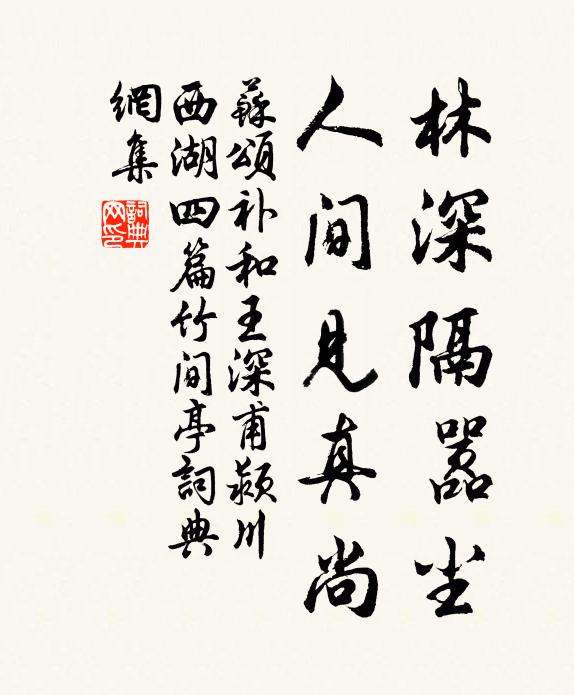 林深隔嚣尘
人间见真尚
蘇頌补和王深甫颍川
西湖四篇竹间亭詞典
網集
詞典
网印